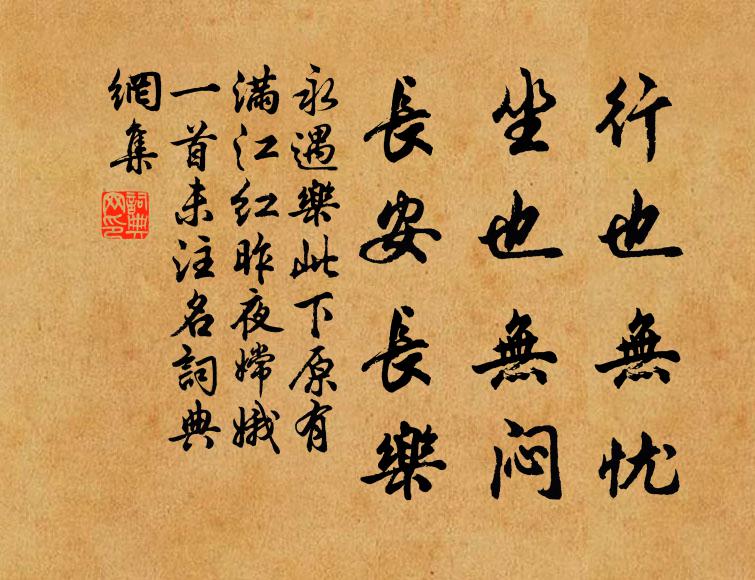 行也無忧
坐也無闷
長安長樂
永遇樂此下原有
满江红昨夜嫦娥
一首未注名詞典
網集
詞典
网印